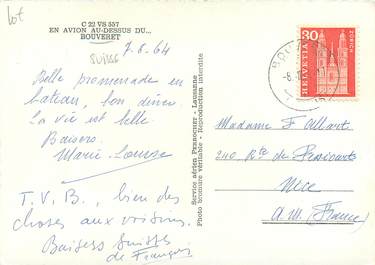 lot
C 22 VS 557
EN AVION AU-DESSUS DU...
BOUVERET
suisse
7.8.64
Belle promenade en
bateau, bon dîner
La vie est belle
Baisers
Marie-Louise
T.V.B., bien des
choses aux voisins.
Baisers Suisses
de François
Service aérien Francorner - Lausanne
Photo bromure véritable - Reproduction interdite
30
HELVETIA
ZÜRICH
Madame F Allart
240 Rte de
Nice
A.M. (France)